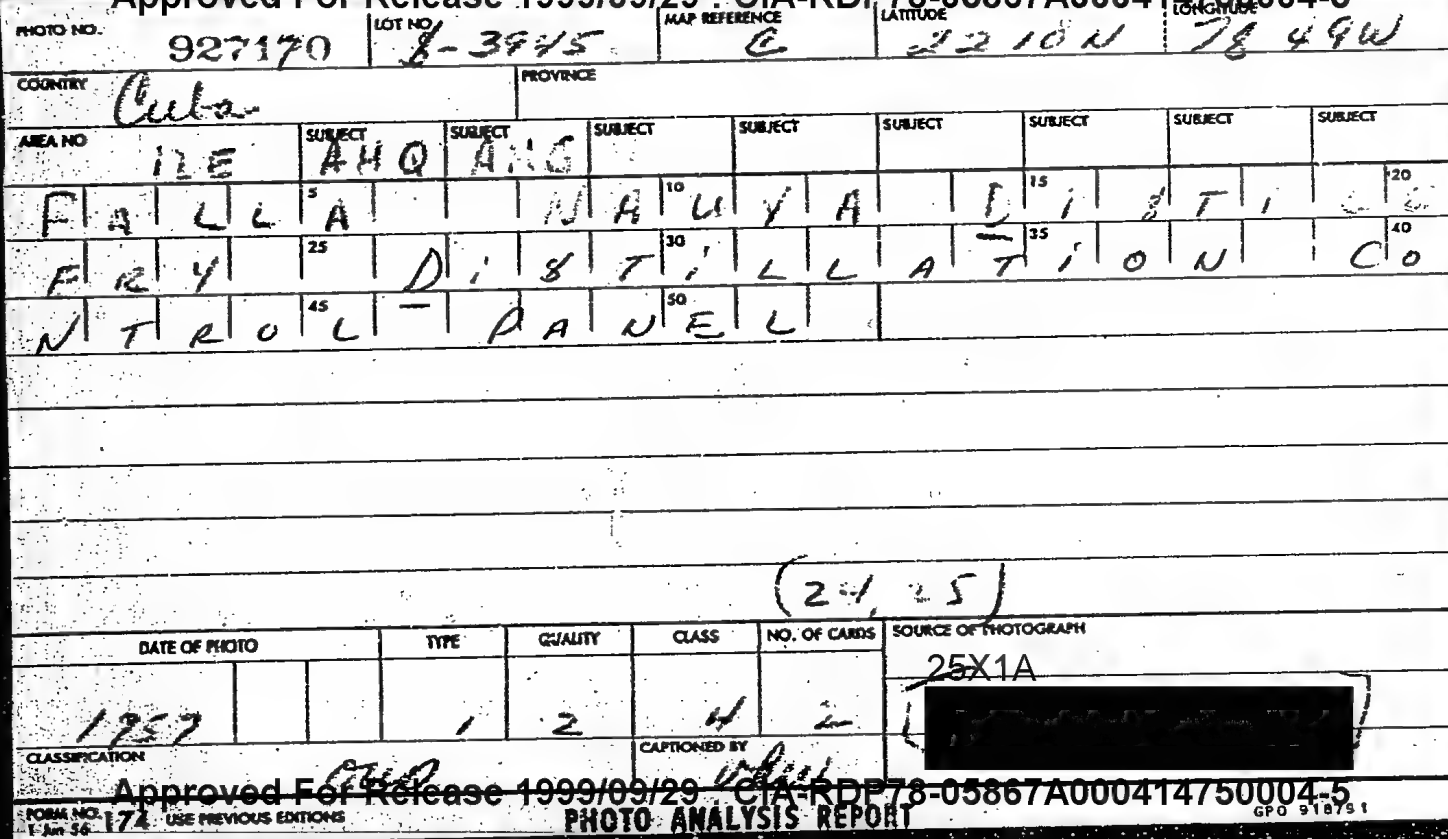 Approved For Release 1999/09/29 : CIA-RDP78-05867A000414750004-5
PHOTO NO. LOT NO. MAP REFERENCE LATITUDE LONGITUDE
927170 8-3945 C 22 10 N 78 49W
COUNTRY Cuba PROVINCE
AREA NO SUBJECT SUBJECT SUBJECT SUBJECT SUBJECT SUBJECT SUBJECT SUBJECT
12E AHQ AHG
5 10 15 20
FALLA NAUYA DISTIL
25 30 35 40
ERY DISTILLATION CO
45 50
NTROL PANEL
(24, 25)
DATE OF PHOTO TYPE QUALITY CLASS NO. OF CARDS SOURCE OF PHOTOGRAPH
25X1A
1957 1 2 4 2
CLASSIFICATION CAPTIONED BY
Approved For Release 1999/09/29 : CIA-RDP78-05867A000414750004-5
FORM NO. 1 Jun 56 174 USE PREVIOUS EDITIONS PHOTO ANALYSIS REPORT GPO 918791